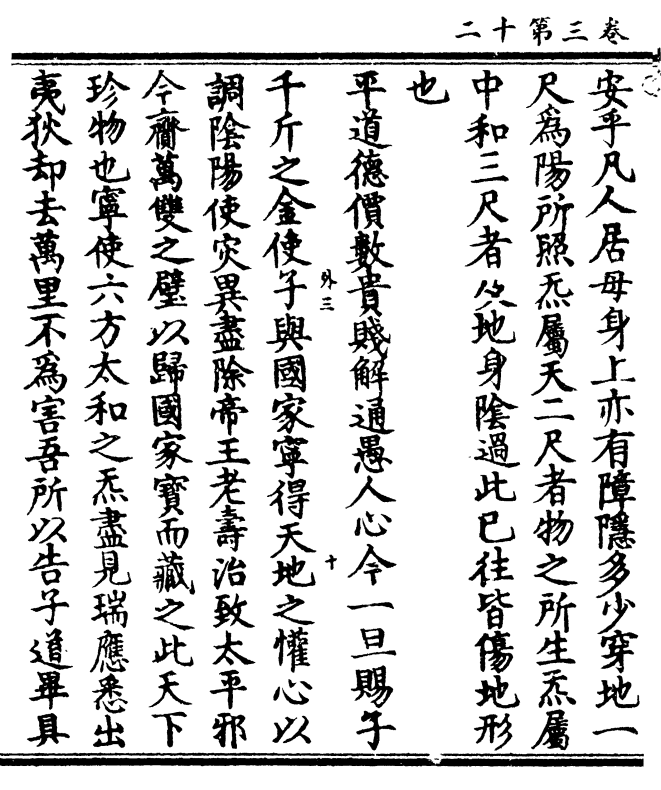 卷三第十二
安乎凡人居母身上亦有障隱多少穿地一
尺爲陽所照炁屬天二尺者物之所生炁屬
中和三尺者及地身陰過此已往皆傷地形
也
平道德價數貴賤解通愚人心今一旦賜子
千斤之金使子與國家寧得天地之懽心以
調陰陽使灾異盡除帝王老壽治致太平邪
今齎萬雙之璧以歸國家寳而藏之此天下
珍物也寧使六方太和之炁盡見瑞應悉出
夷狄却去萬里不爲害吾所以告子道畢具
外三
十